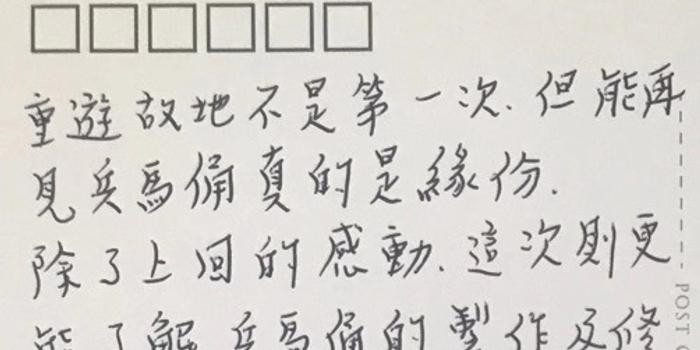 重遊故地不是第一次.但能再
見兵馬俑真的是緣份.
除了上回的感動.這次則更
能了解兵馬俑的製作及修
POST